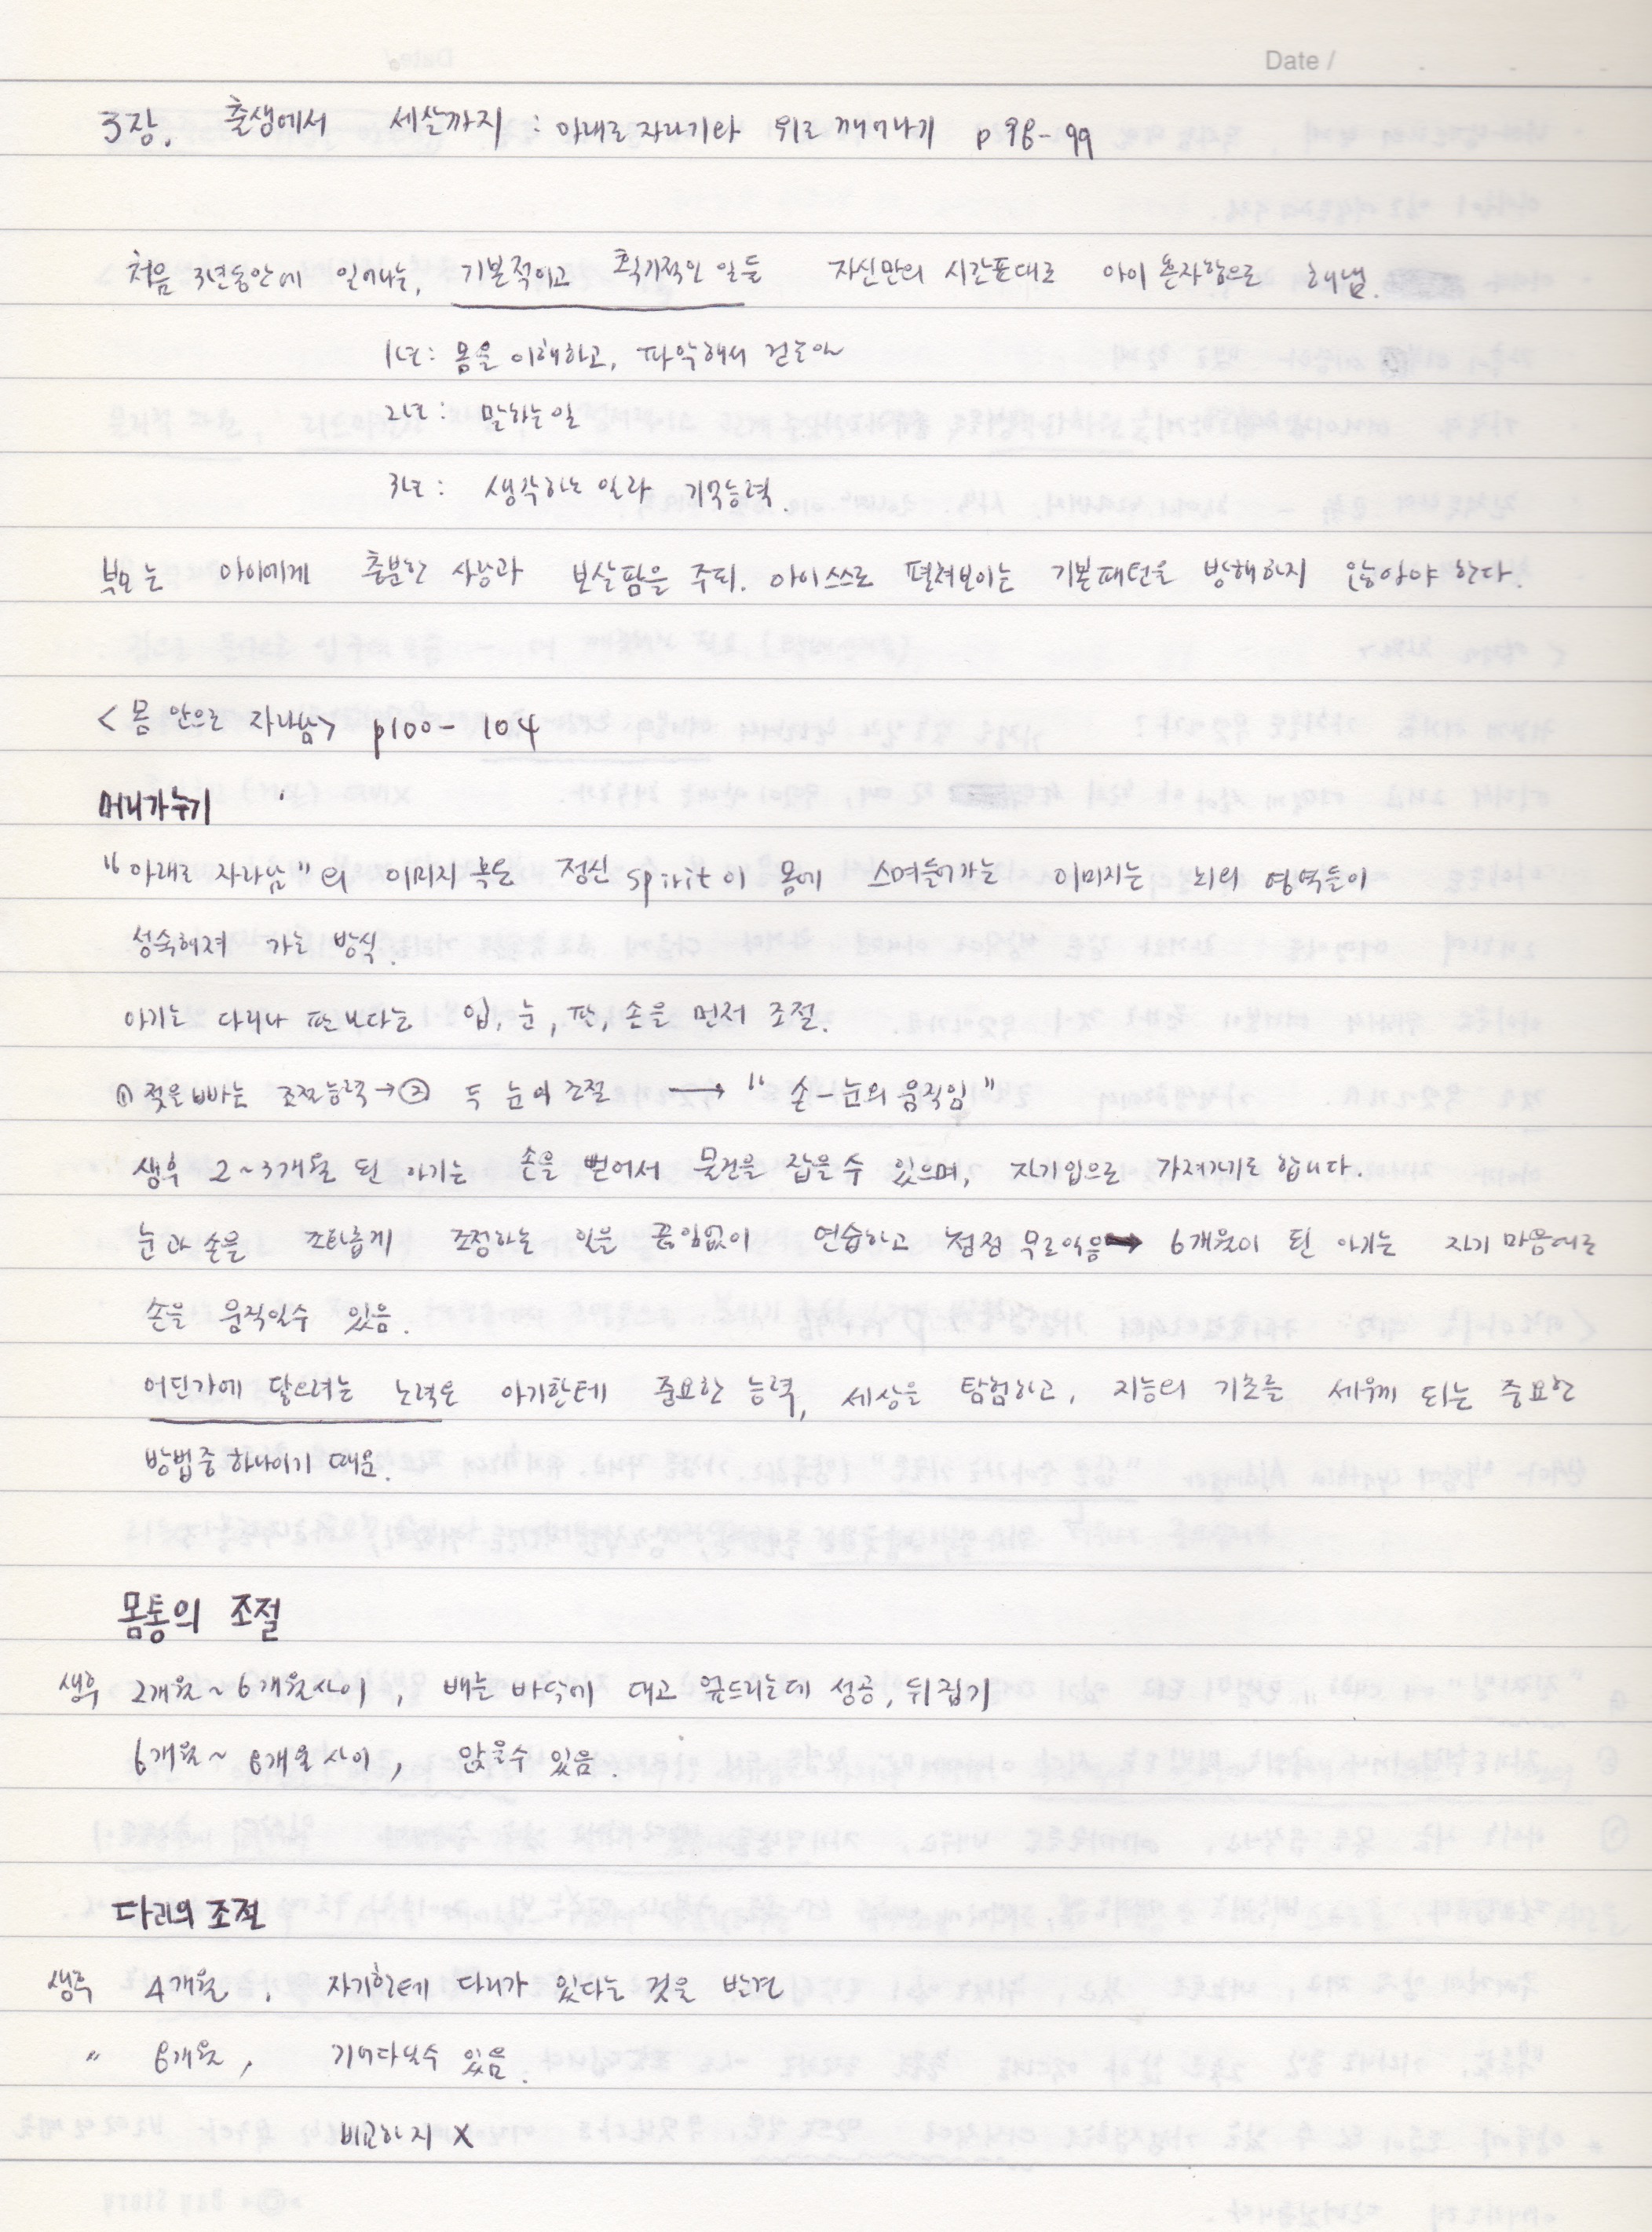 Date /
3장. 출생에서 세살까지 : 아래로 자라기와 위로 깨어나기 p 98-99
처음 3년동안에 일어나는, 기본적이고 획기적인 일들 자신만의 시간표대로 아이 혼자힘으로 해냄.
1년: 몸을 이해하고, 파악해서 걷는아
2년: 말하는 일
3년: 생각하는 일과 기억능력.
부모는 아이에게 충분한 사랑과 보살핌을 주되. 아이스스로 펼쳐보이는 기본패턴을 방해하지 않아야 한다.
<몸 안으로 자라남> p100- 104
머리가누기
"아래로 자라남"의 이미지 혹은 정신 spirit이 몸에 스며들어가는 이미지는 뇌의 영역들이
성숙해져 가는 방식.
아기는 다리나 판보다는 입, 눈, 팔, 손을 먼저 조절.
① 젖을 빠는 조절능력 → ② 두 눈의 조절 → "손-눈의 움직임"
생후 2~3개월 된 아기는 손을 뻗어서 물건을 잡을 수 있으며, 자기입으로 가져가기도 합니다.
눈과 손을 조화롭게 조정하는 일을 끊임없이 연습하고 점점 무르익음 → 6개월이 된 아기는 자기 마음대로
손을 움직일수 있음.
어딘가에 닿으려는 노력은 아기한테 중요한 능력, 세상을 탐험하고, 지능의 기초를 세우게 되는 중요한
방법중 하나이기 때문.
몸통의 조절
생후 2개월~6개월사이, 배를 바닥에 대고 엎드리는데 성공, 뒤집기
6개월~ 8개월 사이, 앉을수 있음.
다리의 조절
생후 4개월, 자기한테 다리가 있다는 것을 발견
" 8개월, 기어다닐수 있음.
비교하지 X